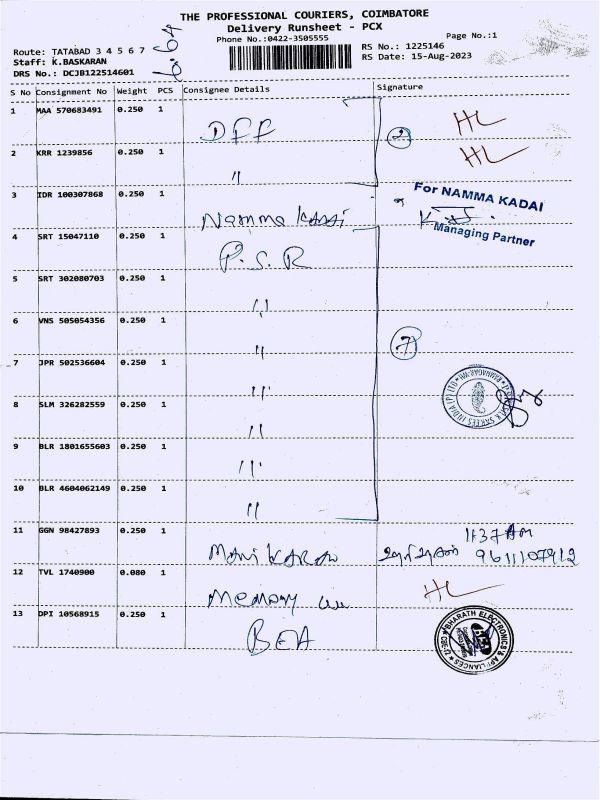 THE PROFESSIONAL COURIERS, COIMBATORE
Delivery Runsheet - PCX
Phone No.:0422-3505555
Page No.:1
Route: TATABAD 3 4 5 6 7
RS No.: 1225146
Staff: K.BASKARAN
RS Date: 15-Aug-2023
DRS No.: DCJB122514601
S No Consignment No Weight PCS Consignee Details Signature
1 MAA 570683491 0.250 1 DFF 2 HL
2 KRR 1239856 0.250 1 " HL
3 IDR 100307868 0.250 1 Namma Kadai For NAMMA KADAI
Managing Partner
4 SRT 15047110 0.250 1 P.S.R
5 SRT 302080703 0.250 1 "
6 VNS 505054356 0.250 1 " 7
7 JPR 502536604 0.250 1 "
8 SLM 326282559 0.250 1 "
9 BLR 1801655603 0.250 1 "
10 BLR 4604062149 0.250 1 "
11 GGN 98427893 0.250 1 Manikaran 11:37 AM
9611107912
12 TVL 1740900 0.080 1 Memory HL
13 DPI 10568915 0.250 1 BEA BHARATH ELECTRONICS & APPLIANCES CBE-12